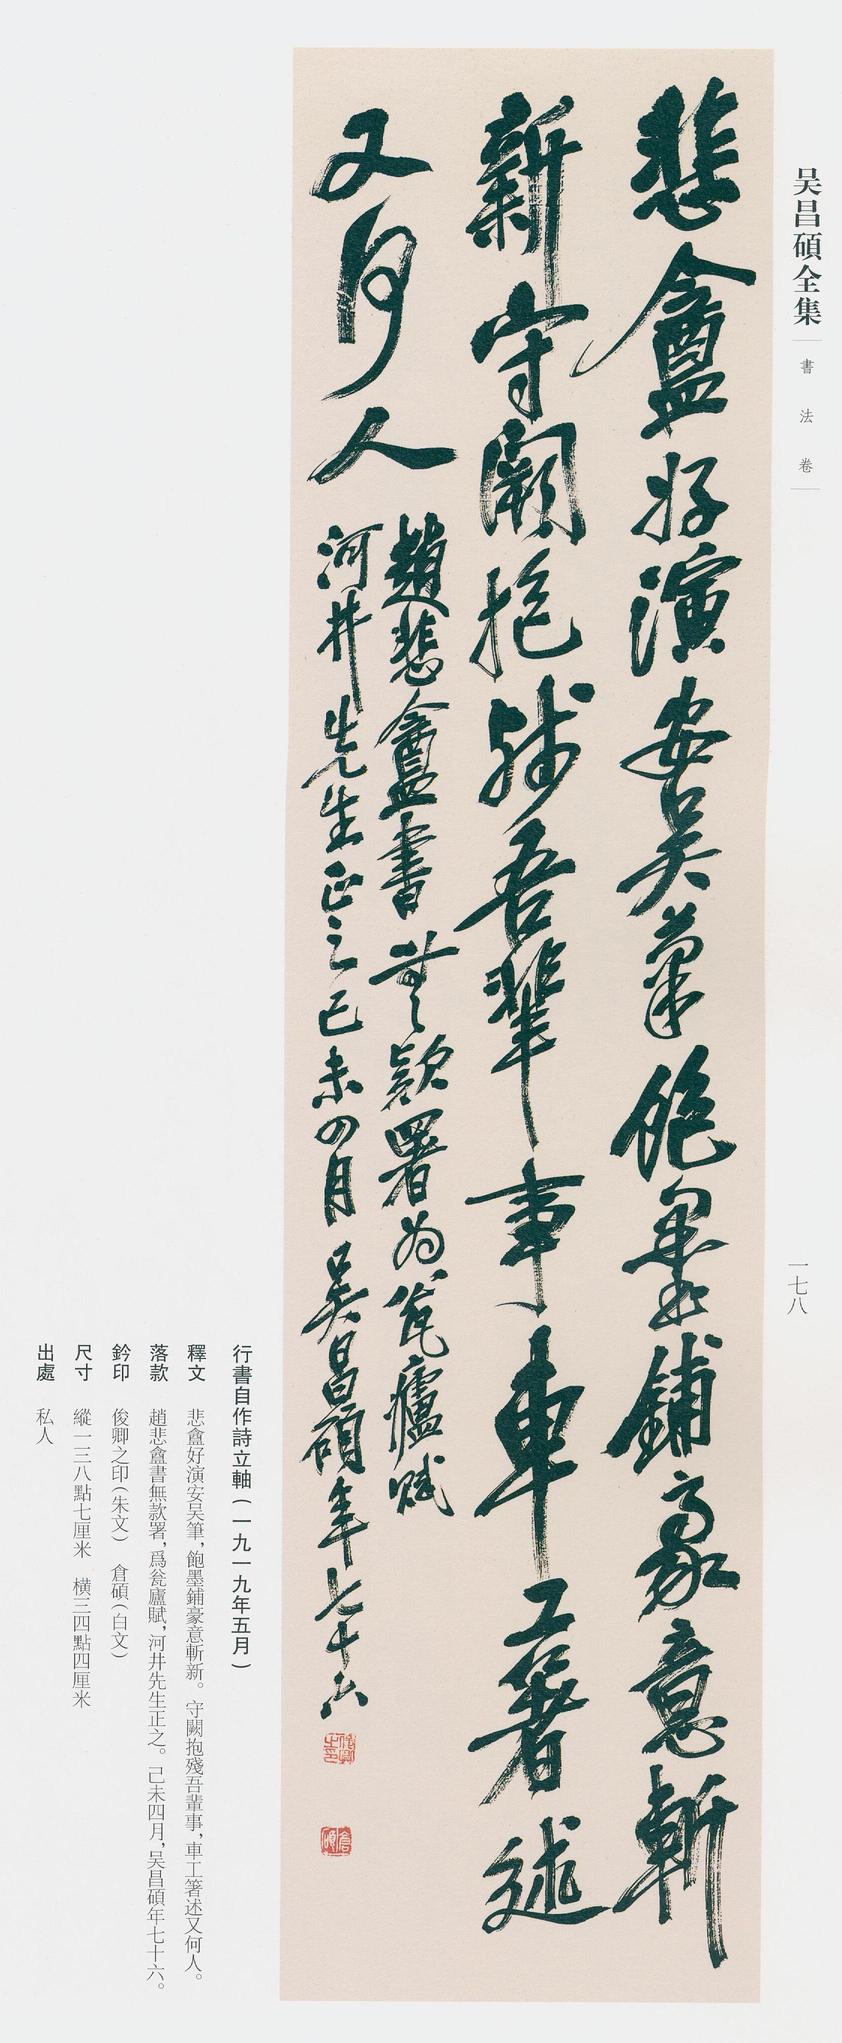 吴昌碩全集
書法卷
一七八
悲盦好演安吴筆飽墨鋪豪意斬
新守闕抱殘吾輩事車工著述
又何人
趙悲盦書無款署为瓮廬賦
河井先生正之己未四月吴昌碩年七十六
俊卿之印
倉碩
行書自作詩立軸(一九一九年五月)
釋文 悲盦好演安吴筆,飽墨鋪豪意斬新。守闕抱殘吾輩事,車工箸述又何人。
落款 趙悲盦書無款署,爲瓮廬賦,河井先生正之。己未四月,吴昌碩年七十六。
鈐印 俊卿之印(朱文) 倉碩(白文)
尺寸 縱一三八點七厘米 横三四點四厘米
出處 私人